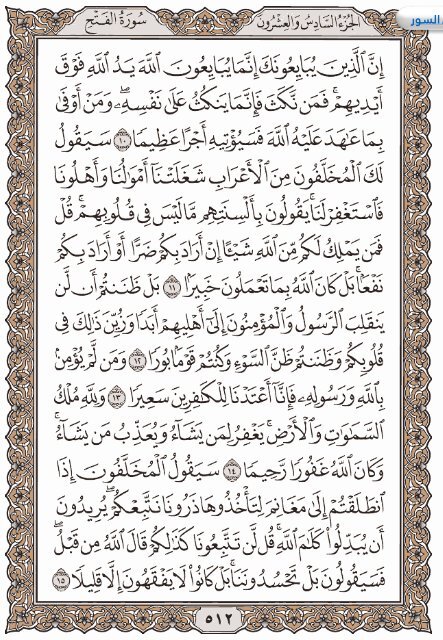 سُورَةُ الفَتْحِ الجُزْءُ السَّادِسُ وَالعِشْرُونَ
السور
إِنَّ ٱلَّذِينَ يُبَايِعُونَكَ إِنَّمَا يُبَايِعُونَ ٱللَّهَ يَدُ ٱللَّهِ فَوْقَ
أَيْدِيهِمْ ۚ فَمَن نَّكَثَ فَإِنَّمَا يَنكُثُ عَلَىٰ نَفْسِهِۦ ۖ وَمَنْ أَوْفَىٰ
بِمَا عَٰهَدَ عَلَيْهُ ٱللَّهَ فَسَيُؤْتِيهِ أَجْرًا عَظِيمًا ١٠ سَيَقُولُ
لَكَ ٱلْمُخَلَّفُونَ مِنَ ٱلْأَعْرَابِ شَغَلَتْنَآ أَمْوَٰلُنَا وَأَهْلُونَا
فَٱسْتَغْفِرْ لَنَا ۚ يَقُولُونَ بِأَلْسِنَتِهِم مَّا لَيْسَ فِى قُلُوبِهِمْ ۚ قُلْ
فَمَن يَمْلِكُ لَكُم مِّنَ ٱللَّهِ شَيْـًٔا إِنْ أَرَادَ بِكُمْ ضَرًّا أَوْ أَرَادَ بِكُمْ
نَفْعًۢا ۚ بَلْ كَانَ ٱللَّهُ بِمَا تَعْمَلُونَ خَبِيرًۢا ١١ بَلْ ظَنَنتُمْ أَن لَّن
يَنقَلِبَ ٱلرَّسُولُ وَٱلْمُؤْمِنُونَ إِلَىٰٓ أَهْلِيهِمْ أَبَدًا وَزُيِّنَ ذَٰلِكَ فِى
قُلُوبِكُمْ وَظَنَنتُمْ ظَنَّ ٱلسَّوْءِ وَكُنتُمْ قَوْمًۢا بُورًا ١٢ وَمَن لَّمْ يُؤْمِنۢ
بِٱللَّهِ وَرَسُولِهِۦ فَإِنَّآ أَعْتَدْنَا لِلْكَٰفِرِينَ سَعِيرًا ١٣ وَلِلَّهِ مُلْكُ
ٱلسَّمَٰوَٰتِ وَٱلْأَرْضِ ۚ يَغْفِرُ لِمَن يَشَآءُ وَيُعَذِّبُ مَن يَشَآءُ ۚ
وَكَانَ ٱللَّهُ غَفُورًا رَّحِيمًا ١٤ سَيَقُولُ ٱلْمُخَلَّفُونَ إِذَا
ٱنطَلَقْتُمْ إِلَىٰ مَغَانِمَ لِتَأْخُذُوهَا ذَرُونَا نَتَّبِعْكُمْ ۖ يُرِيدُونَ
أَن يُبَدِّلُوا۟ كَلَٰمَ ٱللَّهِ ۚ قُل لَّن تَتَّبِعُونَا كَذَٰلِكُمْ قَالَ ٱللَّهُ مِن قَبْلُ ۖ
فَسَيَقُولُونَ بَلْ تَحْسُدُونَنَا ۚ بَلْ كَانُوا۟ لَا يَفْقَهُونَ إِلَّا قَلِيلًا ١٥
٥١٢